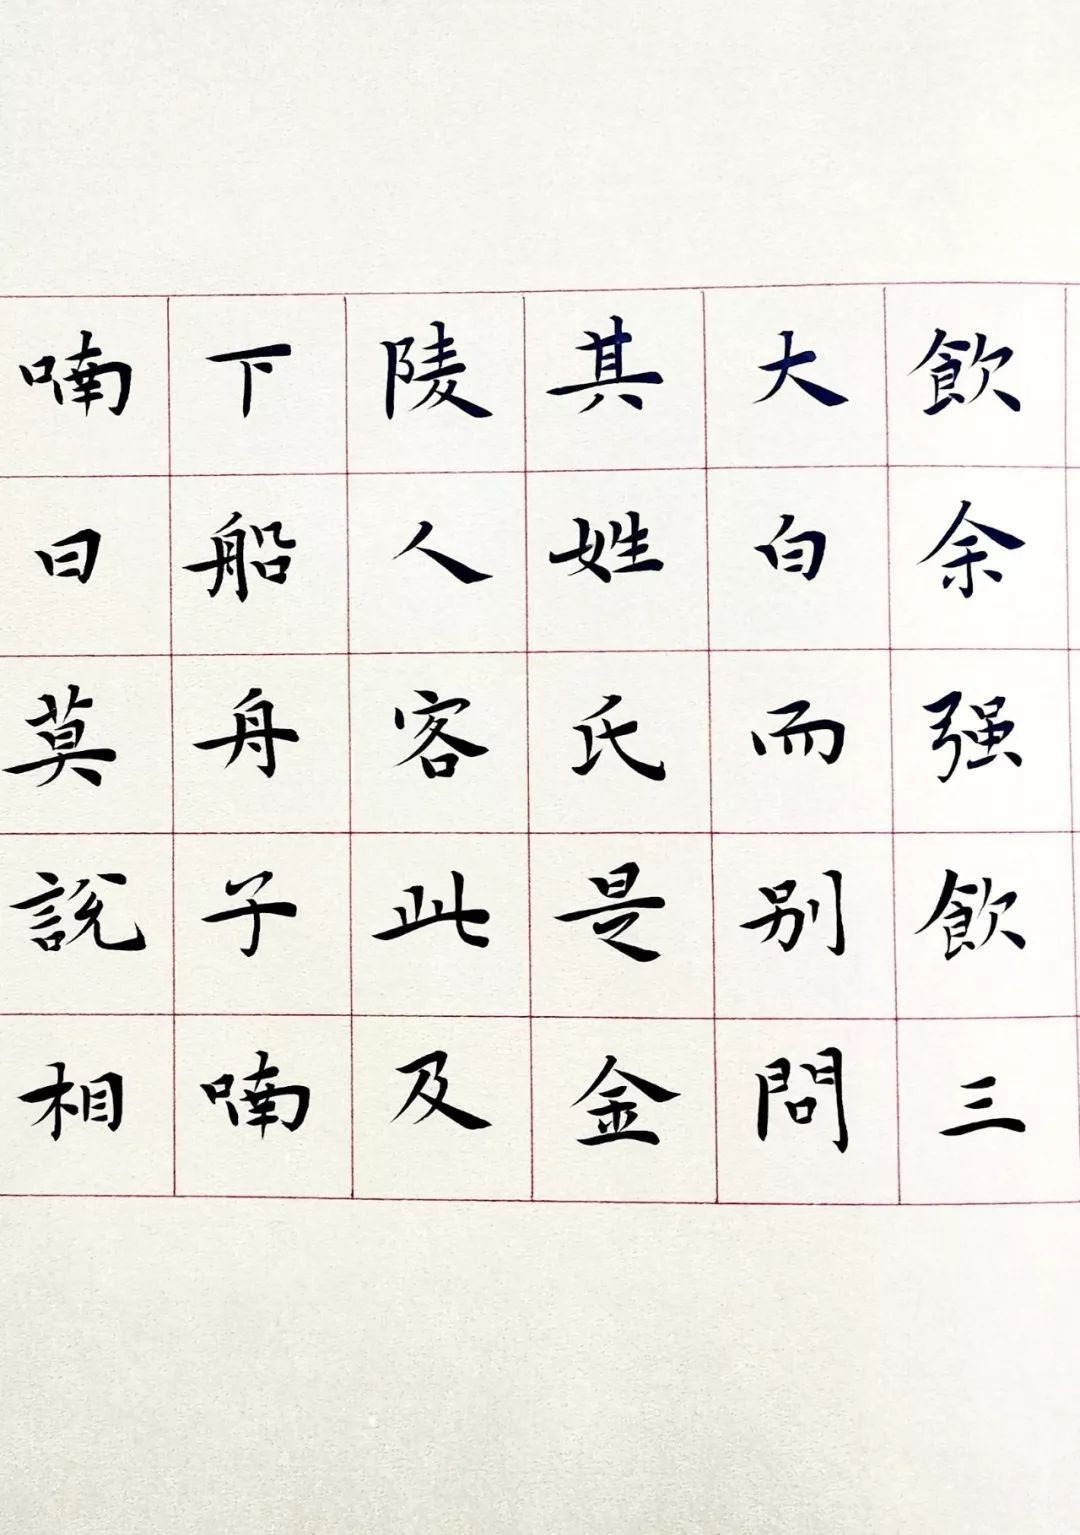 飲余强飲三
大白而别問
其姓氏是金
陵人客此及
下船舟子喃
喃曰莫説相